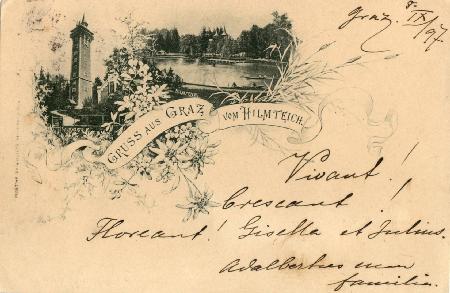 Graz, 8. IX/97
GRUSS AUS GRAZ
VOM HILMTEICH.
Vivant!
Crescant!
Floreant! Gisella et Julius.
Adalbertus cum
familia.